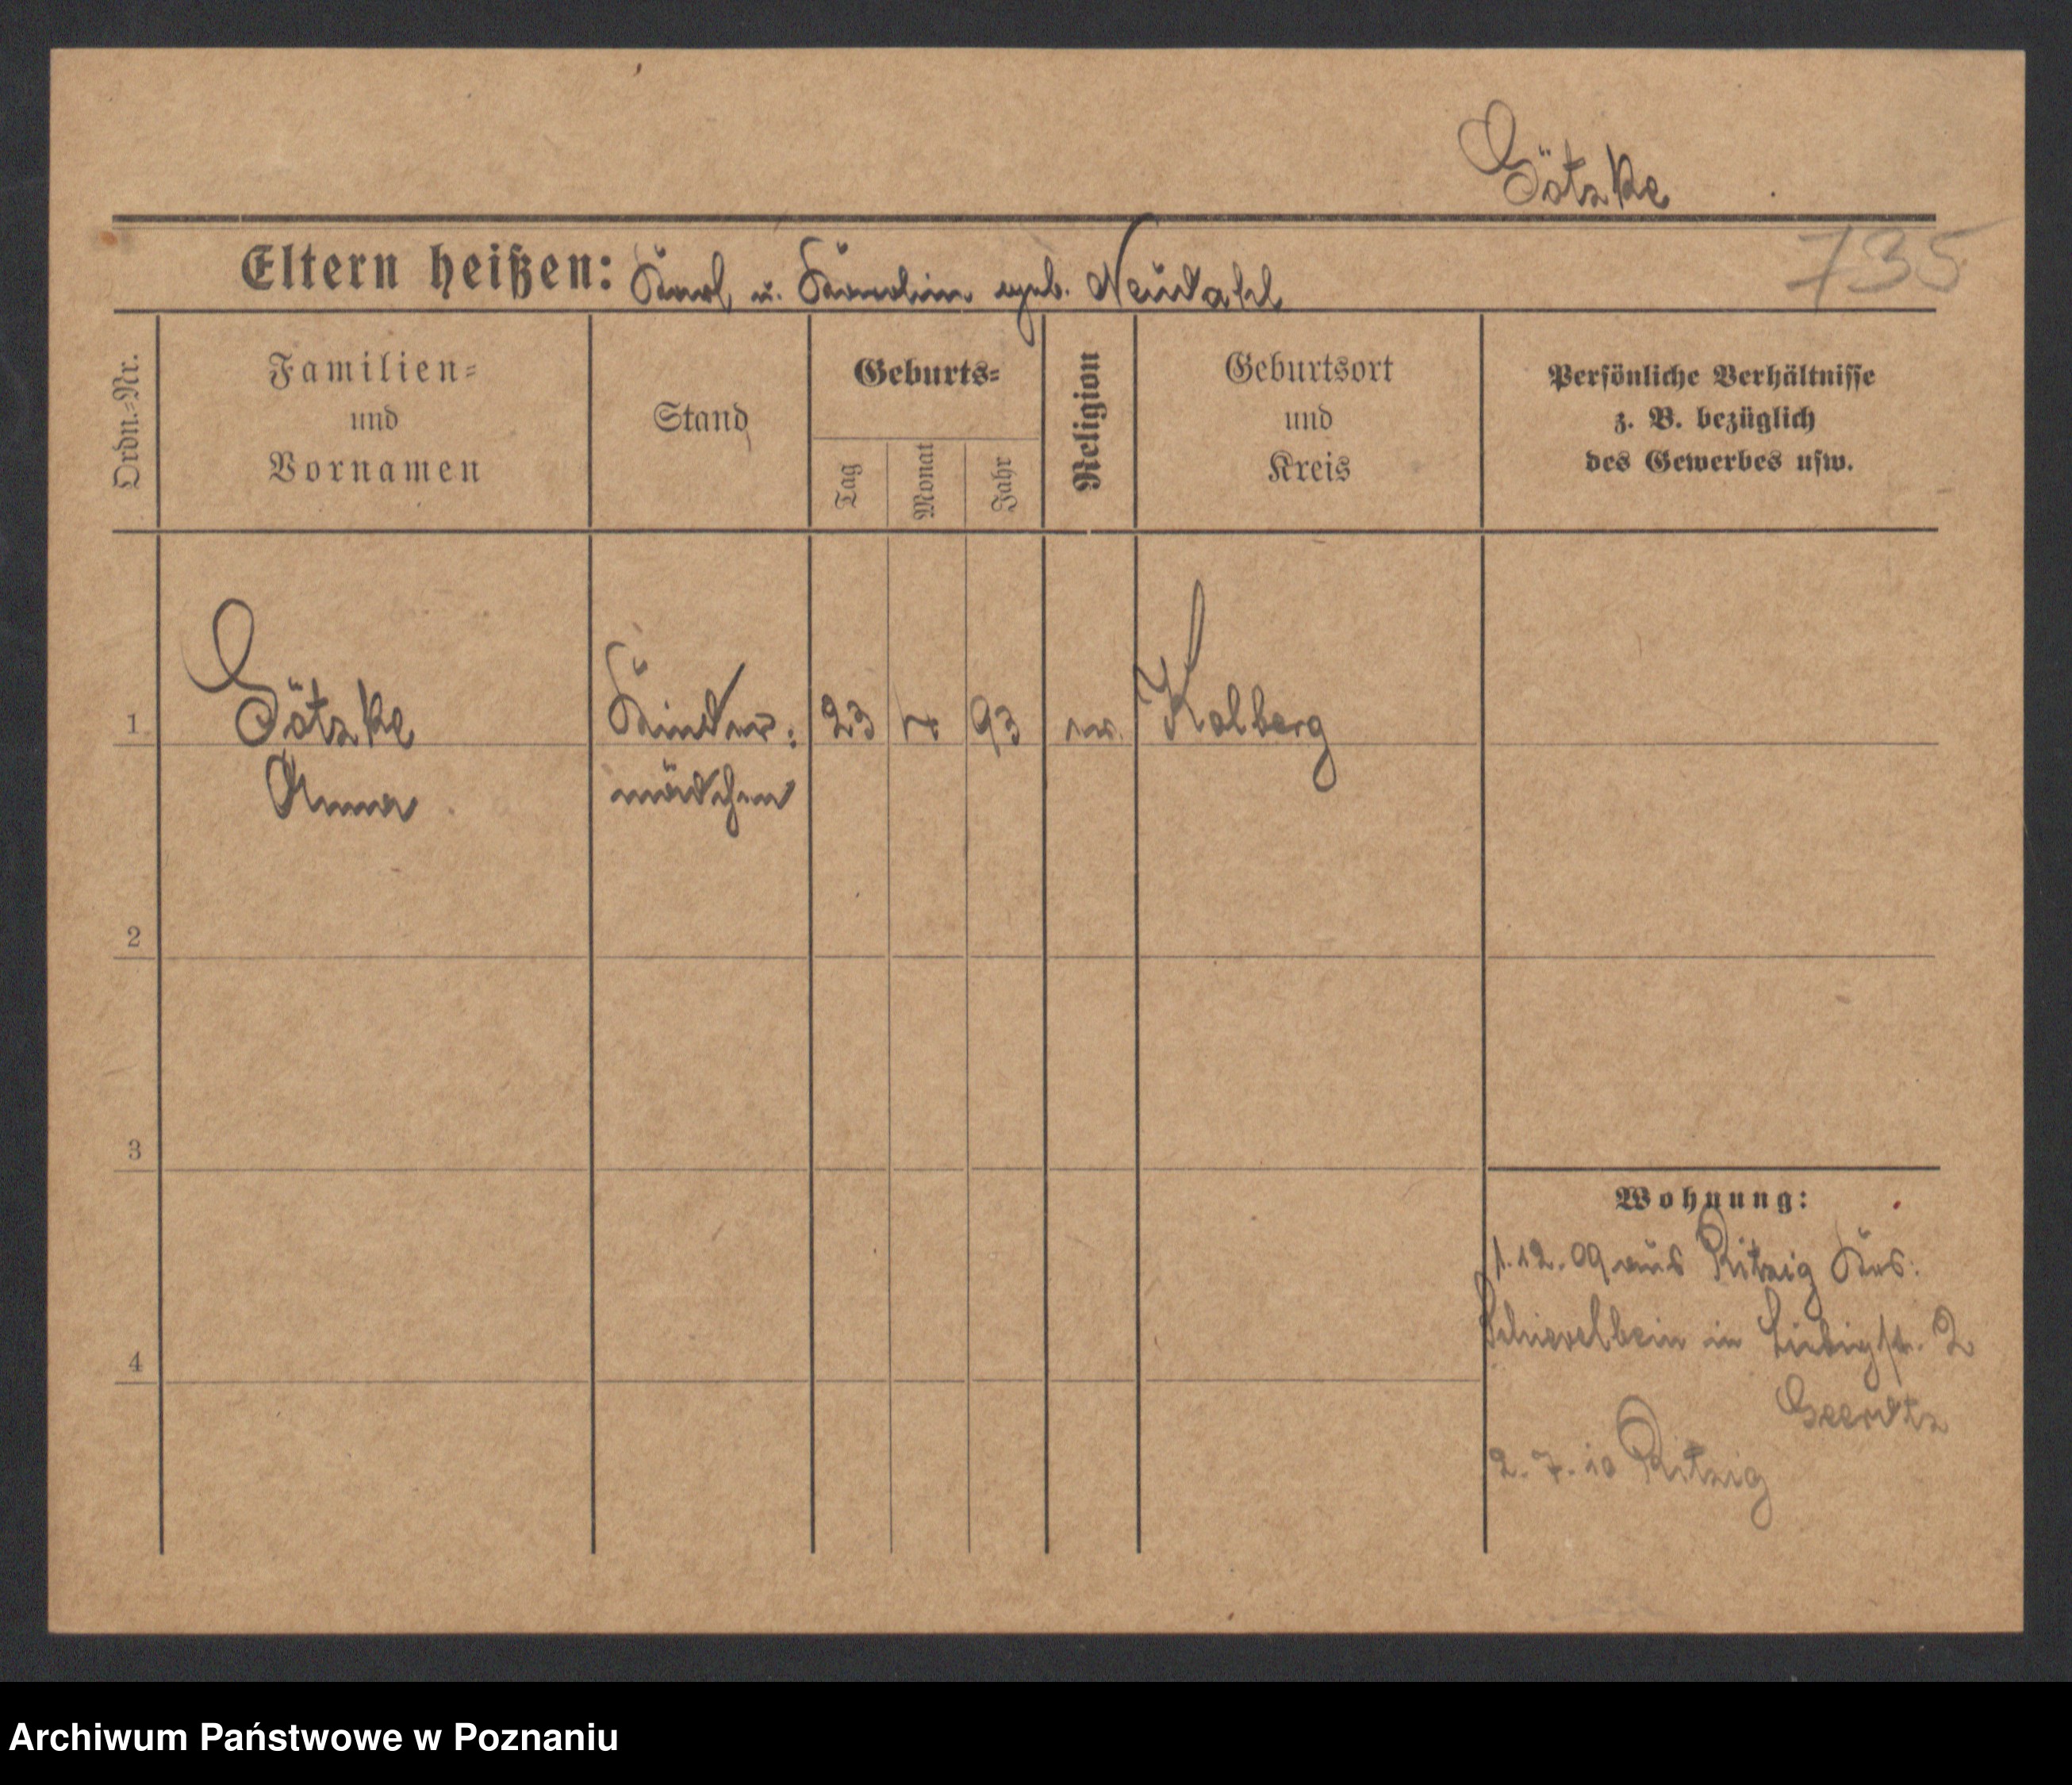 Götzke
735
Eltern heißen: Karl u. Karolin geb. Neudahl
Ordn.=Nr.
Familien=
und
Vornamen
Stand
Geburts=
Tag
Monat
Jahr
Religion
Geburtsort
und
Kreis
Persönliche Verhältnisse
z. B. bezüglich
des Gewerbes usw.
1 Götzke Kinder: 23 93 ev. Kolberg
Anna mädchen
2
3
4
Wohnung:
1.12.09 aus Ritzig Krs.
Schievelbein in Liebigst. 2
Geerdtz
2.7.10 Ritzig
Archiwum Państwowe w Poznaniu